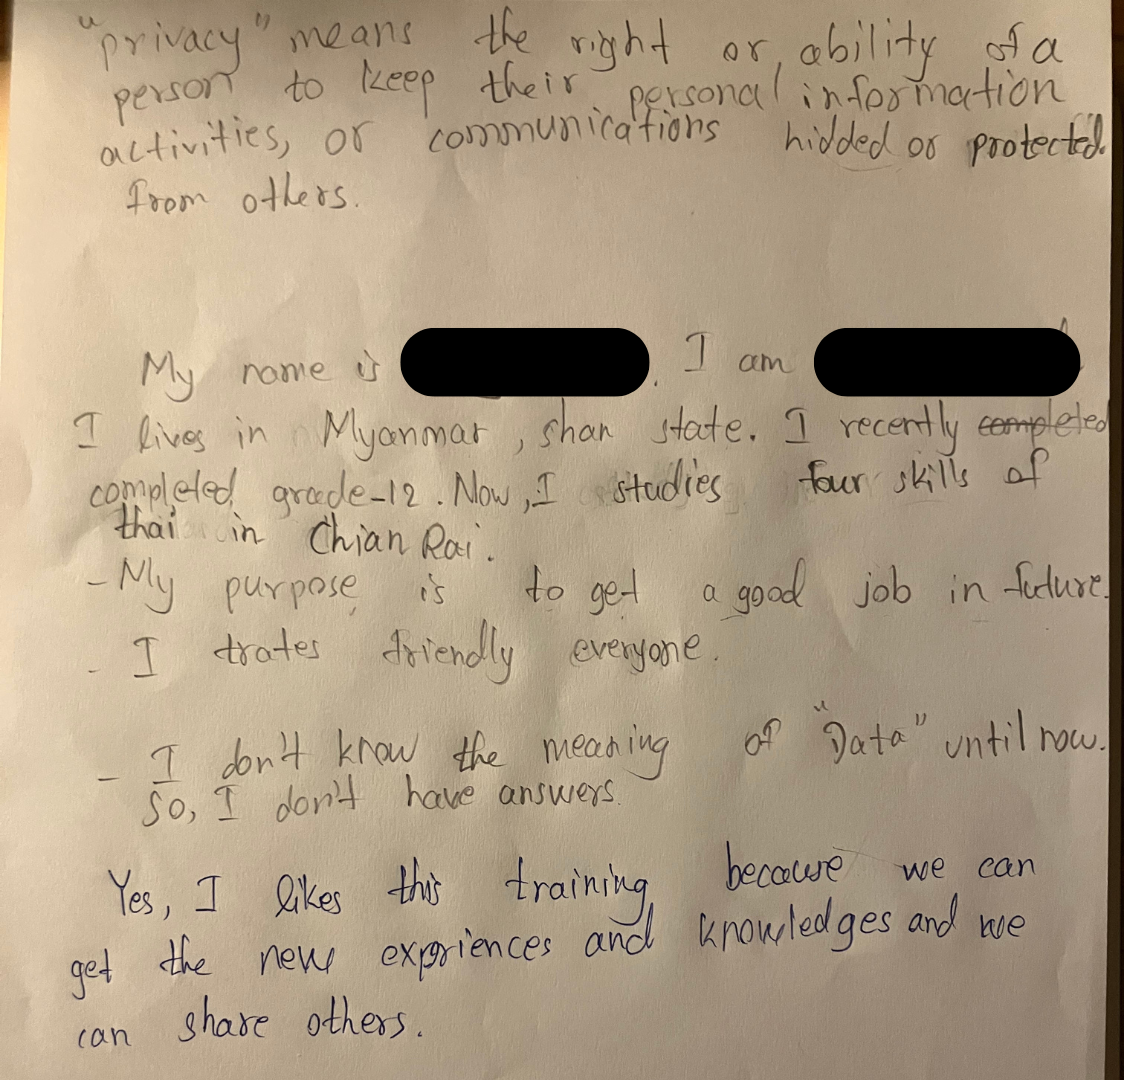 "privacy" means the right or ability of a
person to keep their personal information
activities, or communications hidded or protected.
from others.
My name is . I am
I lives in Myanmar, shan state. I recently completed
completed grade-12. Now, I studies four skills of
thai in Chian Rai.
- My purpose is to get a good job in future.
- I trates friendly everyone.
- I don't know the meaning of "Data" until now.
So, I don't have answers.
Yes, I likes this training because we can
get the new expriences and knowledges and we
can share others.